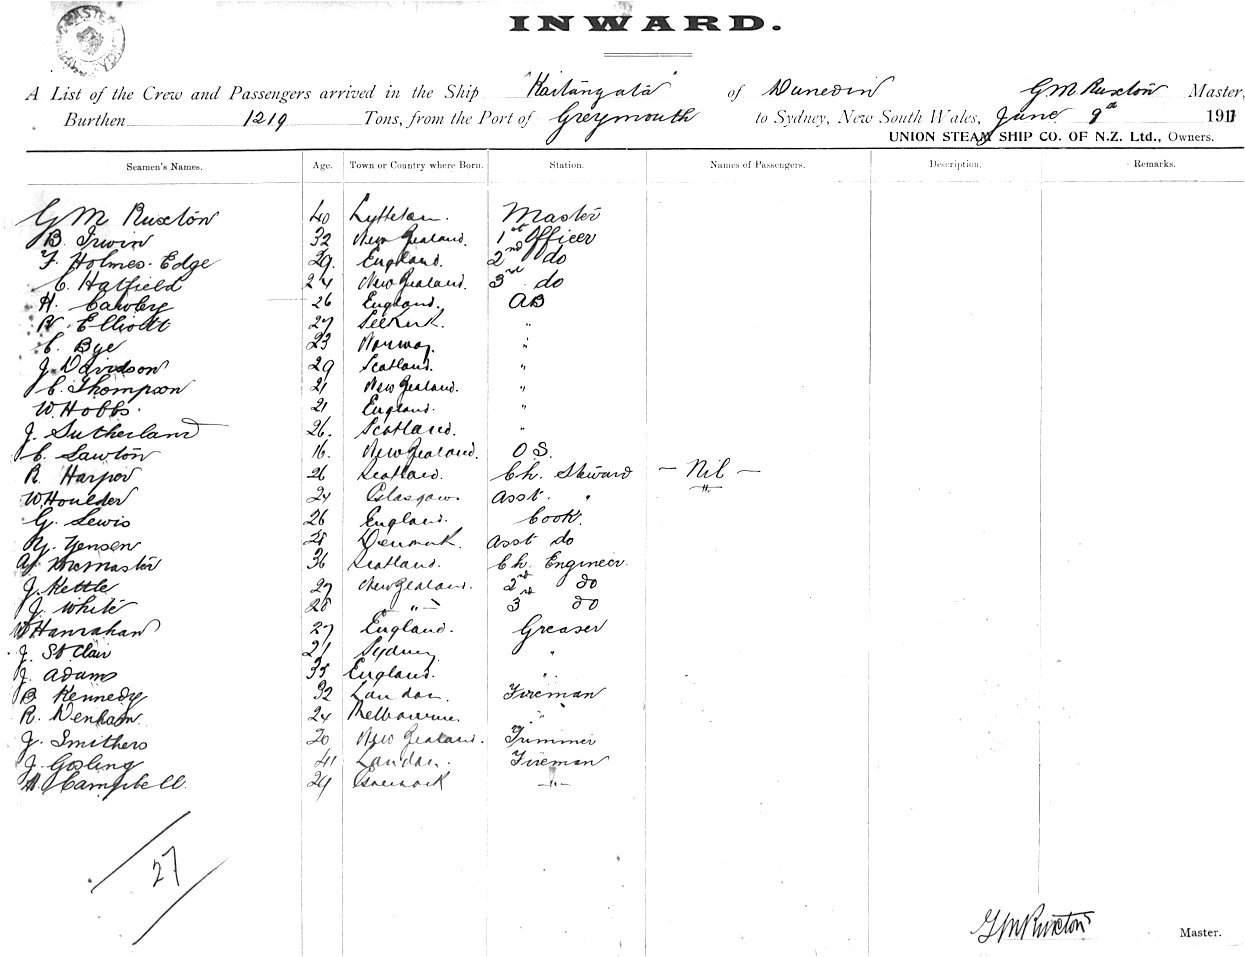 INWARD.
A List of the Crew and Passengers arrived in the Ship "Kaitangata" of Dunedin G M Ruxton Master,
Burthen 1219 Tons, from the Port of Greymouth to Sydney, New South Wales, June 9th 1911
UNION STEAM SHIP CO. OF N.Z. Ltd., Owners.
Seamen's Names. Age. Town or Country where Born. Station. Names of Passengers. Description. Remarks.
G M Ruxton 40 Lyttelton. Master
B. Irwin 32 New Zealand. 1st Officer
F. Holmes-Edge 29. England. 2nd do
C. Hatfield 24 New Zealand. 3rd do
H. Cawley 26 England. AB
Elliott 27 Selkirk. "
C. Bye 23 Norway. "
J. Davidson 29 Scotland. "
C. Thompson 21 New Zealand. "
W. Hobbs. 21 England. "
J. Sutherland 26. Scotland. "
C. Lawton 16. New Zealand. O.S.
R. Harper 26 Scotland. Ch. Steward — Nil —
W. Houlder 24 Glasgow. Asst. "
G. Lewis 26 England. Cook.
Y. Yensen 28 Denmark. Asst do
McMaster 36 Scotland. Ch. Engineer.
J. Kettle 27 New Zealand. 2nd do
J. White 28 — " — 3rd do
W Hanrahan 27 England. Greaser
J. St Clair 21 Sydney "
J. Adams 35 England. "
B. Kennedy 32 London. Fireman
R. Denham 24 Melbourne. "
J. Smithers 20 New Zealand. Trimmer
J. Gosling 41 London. Fireman
Campbell. 29 Greenock —"—
27
G M Ruxton Master.